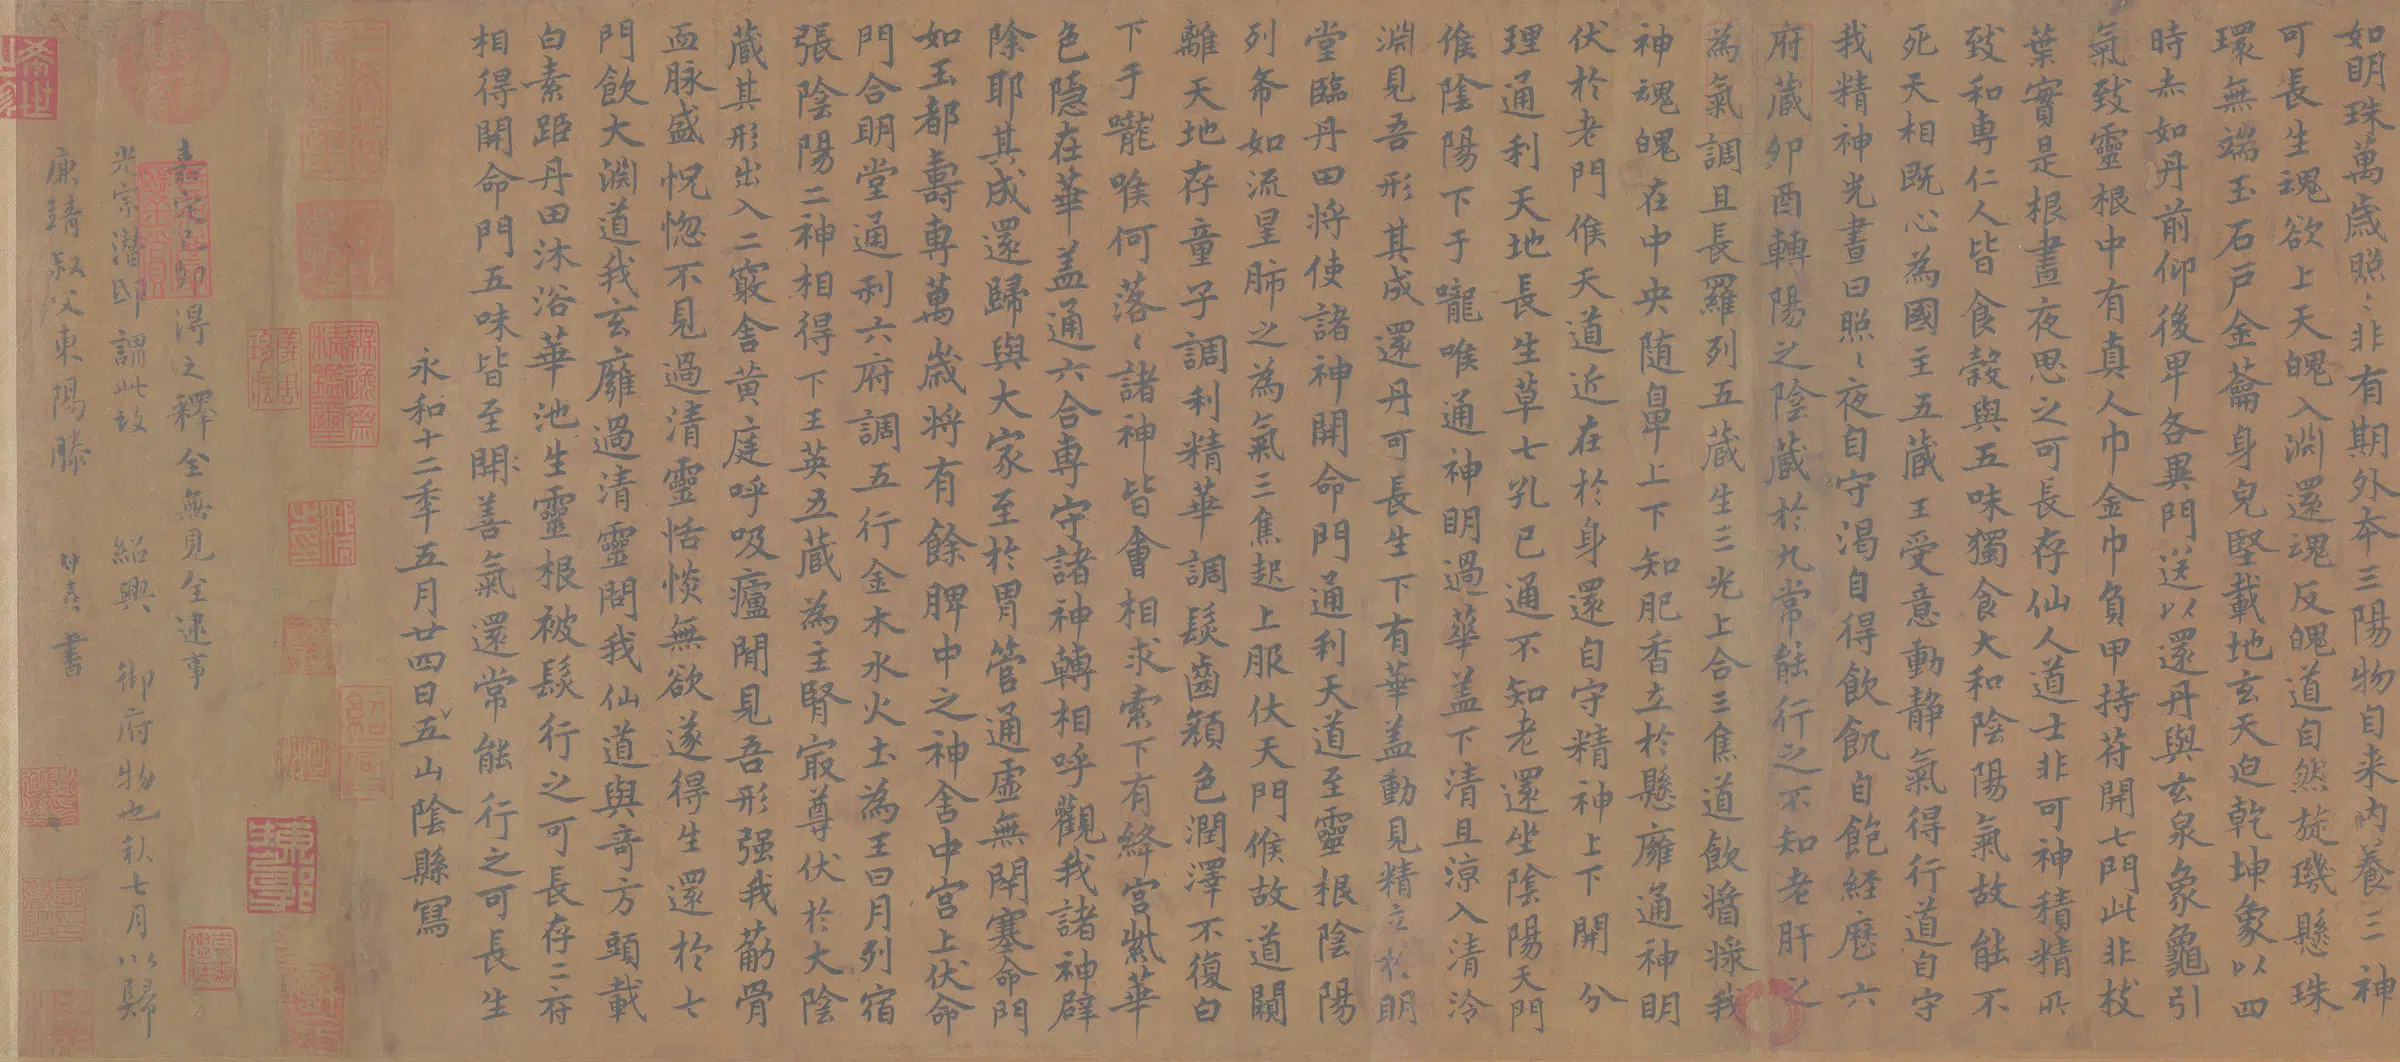 如明珠萬歲照〻非有期外本三陽物自来内養三神
可長生魂欲上天魄入淵還魂反魄道自然旋璣懸珠
環無端玉石戸金籥身皃堅載地玄天迫乾坤象以四
時赤如丹前仰後卑各異門送以還丹與玄泉象龜引
氣致靈根中有真人巾金巾負甲持苻開七門此非枝
葉實是根晝夜思之可長存仙人道士非可神積精所
致和専仁人皆食穀與五味獨食大和陰陽氣故能不
死天相既心為國主五蔵王受意動静氣得行道自守
我精神光晝日照〻夜自守渇自得飲飢自飽経歷六
府蔵夘酉轉陽之陰蔵於九常能行之不知老肝之
為氣調且長羅列五蔵生三光上合三焦道飲醬㵂我
神魂魄在中央随鼻上下知肥香立於懸癰通神明
伏於老門候天道近在於身還自守精神上下開分
理通利天地長生草七孔已通不知老還坐陰陽天門
候陰陽下于嚨喉通神明過華盖下清且涼入清泠
淵見吾形其成還丹可長生下有華盖動見精立於明
堂臨丹田将使諸神開命門通利天道至靈根陰陽
列布如流星肺之為氣三焦起上服伏天門候故道闚
離天地存童子調利精華調髮齒顔色潤澤不復白
下于嚨喉何落〻諸神皆會相求索下有絳宫紫華
色隠在華盖通六合専守諸神轉相呼觀我諸神辟
除耶其成還歸與大家至於胃管通虚無閇塞命門
如玉都壽専萬歲将有餘脾中之神舍中宫上伏命
門合明堂通利六府調五行金木水火土為王日月列宿
張陰陽二神相得下玉英五蔵為主腎㝡尊伏於大陰
蔵其形出入二竅舎黄庭呼吸廬間見吾形强我萮骨
血脉盛怳惚不見過清靈恬惔無欲遂得生還於七
門飲大淵道我玄癰過清靈問我仙道與奇方頭載
白素距丹田沐浴華池生靈根被髮行之可長存二府
相得開命門五味皆至開〻善氣還常能行之可長生
永和十二年五月廿四日五山陰縣寫
嘉定己卯得之釋全無見全逮事
光宗潜邸謂此故 紹興 御府物也秋七月以歸
庚靖叔父東陽滕 仲喜書